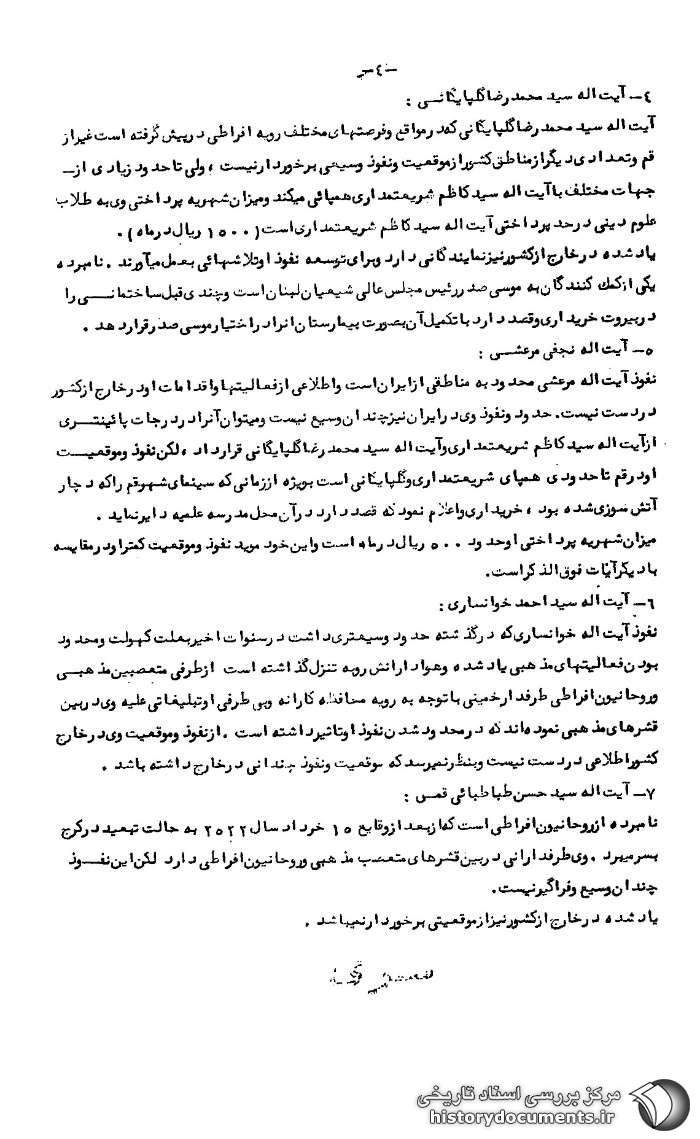 -٤-
٤- آیت اله سید محمد رضا گلپایگانی :
آیت اله سید محمد رضا گلپایگانی که در مواقع و فرصتهای مختلف رویه افراطی در پیش گرفته است غیر از
قم و تعدادی دیگر از مناطق کشور از موقعیت و نفوذ وسیعی برخوردار نیست ، ولی تا حدود زیادی از -
جهات مختلف با آیت اله سید کاظم شریعتمداری همپائی میکند و میزان شهریه پرداختی وی به طلاب
علوم دینی در حد پرداختی آیت اله سید کاظم شریعتمداری است ( ۱۵۰۰ ریال در ماه ) .
یاد شده در خارج از کشور نیز نمایندگانی دارد و برای توسعه نفوذ او تلاشهائی بعمل میآورند . نامبرده
یکی از کمک کنندگان به موسی صدر رئیس مجلس عالی شیعیان لبنان است و چندی قبل ساختمانی را
در بیروت خریداری و قصد دارد با تکمیل آن بصورت بیمارستان انرا در اختیار موسی صدر قرار دهد .
۵- آیت اله نجفی مرعشی :
نفوذ آیت اله مرعشی محدود به مناطقی از ایران است و اطلاعی از فعالیتها و اقدامات او در خارج از کشور
در دست نیست. حدود و نفوذ وی در ایران نیز چندان وسیع نیست و میتوان آنرا در درجات پائینتری
از آیت اله سید کاظم شریعتمداری و آیت اله سید محمد رضا گلپایگانی قرار داد ، لکن نفوذ و موقعیت
او در قم تا حدودی همپای شریعتمداری و گلپایگانی است بویژه از زمانی که سینمای شهر قم را که دچار
آتش سوزی شده بود ، خریداری و اعلام نمود که قصد دارد در آن محل مدرسه علمیه دایر نماید .
میزان شهریه پرداختی او حدود ۵۰۰ ریال در ماه است و این خود موید نفوذ و موقعیت کمتر او در مقایسه
با دیگر آیات فوق الذکر است.
٦- آیت اله سید احمد خوانساری :
نفوذ آیت اله خوانساری که در گذشته حدود وسیعتری داشت در سنوات اخیر بعلت کهولت و محدود
بودن فعالیتهای مذهبی یاد شده و هوادارانش رو به تنزل گذاشته است از طرفی متعصبین مذهبی
و روحانیون افراطی طرفدار خمینی با توجه به رویه محافظه کارانه و بی طرفی او تبلیغاتی علیه وی در بین
قشرهای مذهبی نموده اند که در محدود شدن نفوذ او تاثیر داشته است . از نفوذ و موقعیت وی در خارج
کشور اطلاعی در دست نیست و بنظر نمیرسد که موقعیت و نفوذ چندانی در خارج داشته باشد .
۷- آیت اله سید حسن طباطبائی قمی :
نامبرده از روحانیون افراطی است که از بعد از وقایع ۱۵ خرداد سال ۲۵۲۲ به حالت تبعید در کرج
بسر میبرد . وی طرفدارانی در بین قشرهای متعصب مذهبی و روحانیون افراطی دارد لکن این نفوذ
چندان وسیع و فراگیر نیست.
یاد شده در خارج از کشور نیز از موقعیتی برخوردار نمیباشد .
مرکز بررسی اسناد تاریخی
historydocuments.ir